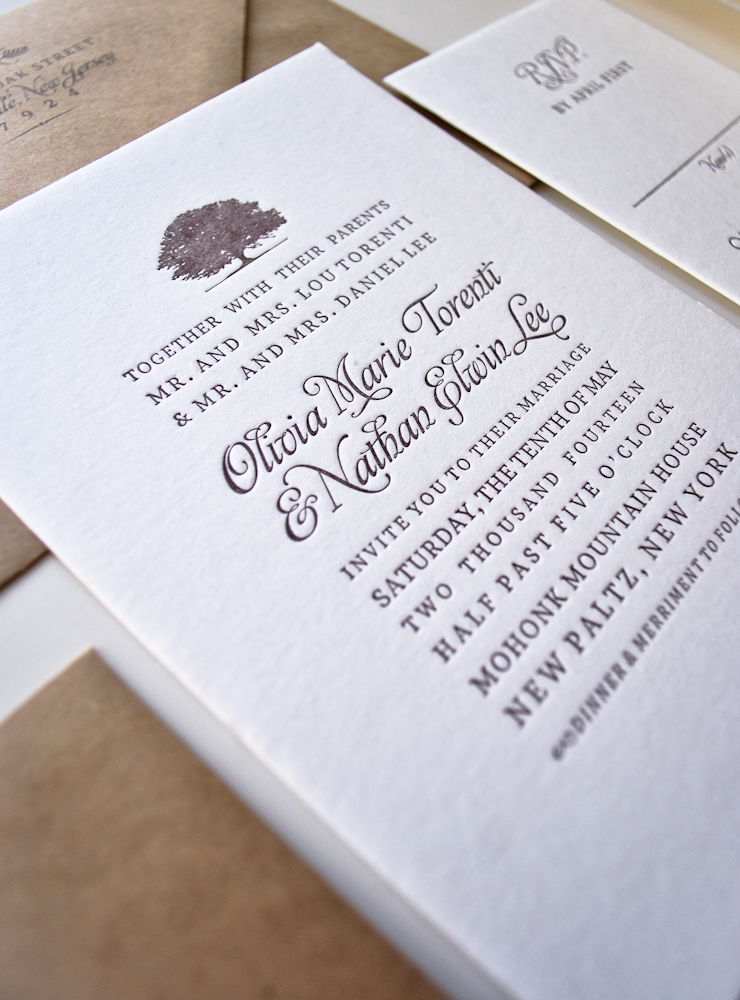 OAK STREET
New Jersey
7 9 2 4
TOGETHER WITH THEIR PARENTS
MR. AND MRS. LOU TORENTI
& MR. AND MRS. DANIEL LEE
Olivia Marie Torenti
& Nathan Elwin Lee
INVITE YOU TO THEIR MARRIAGE
SATURDAY, THE TENTH OF MAY
TWO THOUSAND FOURTEEN
HALF PAST FIVE O'CLOCK
MOHONK MOUNTAIN HOUSE
NEW PALTZ, NEW YORK
DINNER & MERRIMENT TO FOLLO
RSVP
BY APRIL FIRST